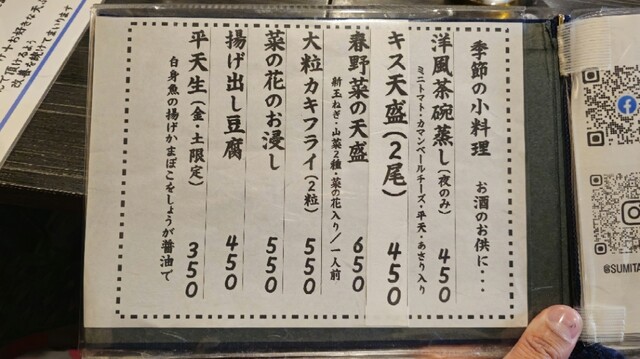 季節の小料理　お酒のお供に・・・
洋風茶碗蒸し(夜のみ) 450
ミニトマト・カマンベールチーズ・平天・あさり入り
キス天盛(2尾) 450
春野菜の天盛 650
新玉ねぎ・山菜2種・菜の花入り/一人前
大粒カキフライ(2粒) 550
菜の花のお浸し 550
揚げ出し豆腐 450
平天生(金・土限定) 350
白身魚の揚げかまぼこをしょうが醤油で
@SUMITA